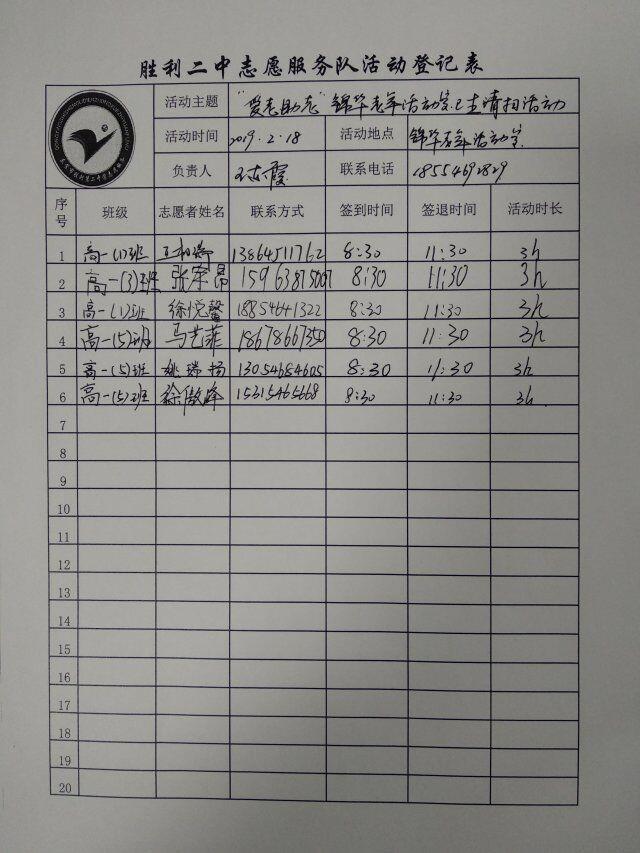 胜利二中志愿服务队活动登记表
活动主题 "爱老助老" 锦华老年活动室卫生清扫活动
活动时间 2019.2.18 活动地点 锦华老年活动室
负责人 联系电话 18554692829
序号 班级 志愿者姓名 联系方式 签到时间 签退时间 活动时长
1 高一(1)班 13864511762 8:30 11:30 3h
2 高一(3)班 张家昂 15963875007 8:30 11:30 3h
3 高一(1)班 徐悦馨 18854641322 8:30 11:30 3h
4 高一(5)班 马艺菲 18678667350 8:30 11:30 3h
5 高一(5)班 姚瑞扬 13054684605 8:30 11:30 3h
6 高一(5)班 徐傲峰 15315465668 8:30 11:30 3h
7
8
9
10
11
12
13
14
15
16
17
18
19
20